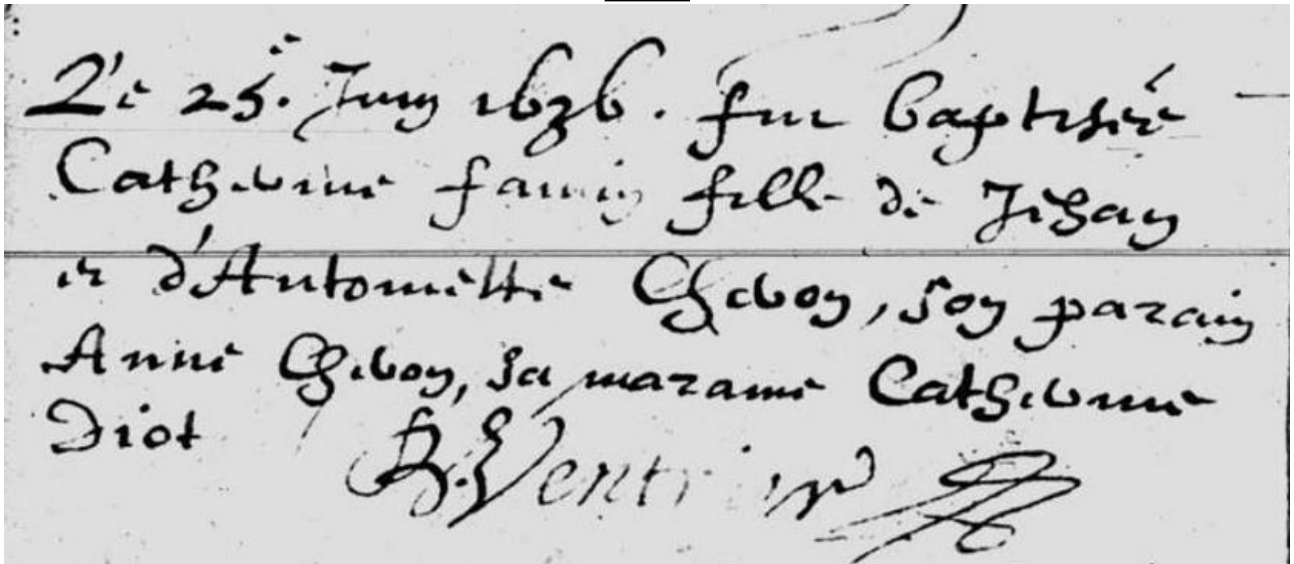 Le 25e. Juin 1636. fut baptisée
Catherine fille de Jehan
et d'Antoinette Cheron, son parain
Anne Cheron, sa maraine Catherine
Diot